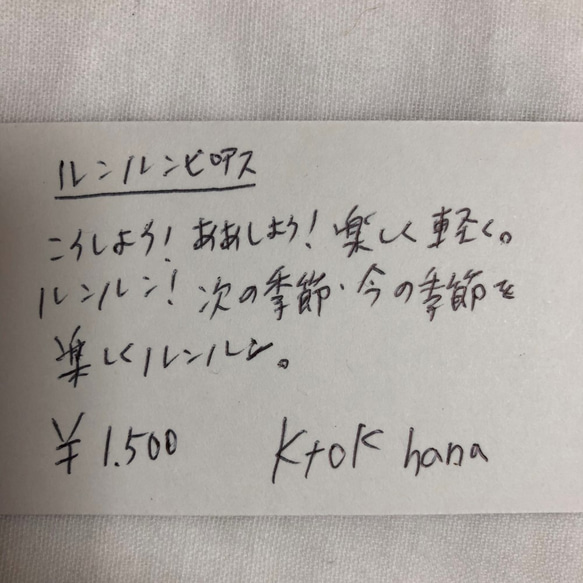 ルンルンピアス
こうしよう！ああしよう！楽しく軽く。
ルンルン！次の季節・今の季節を
楽しくルンルン。
¥1.500 KtoK hana